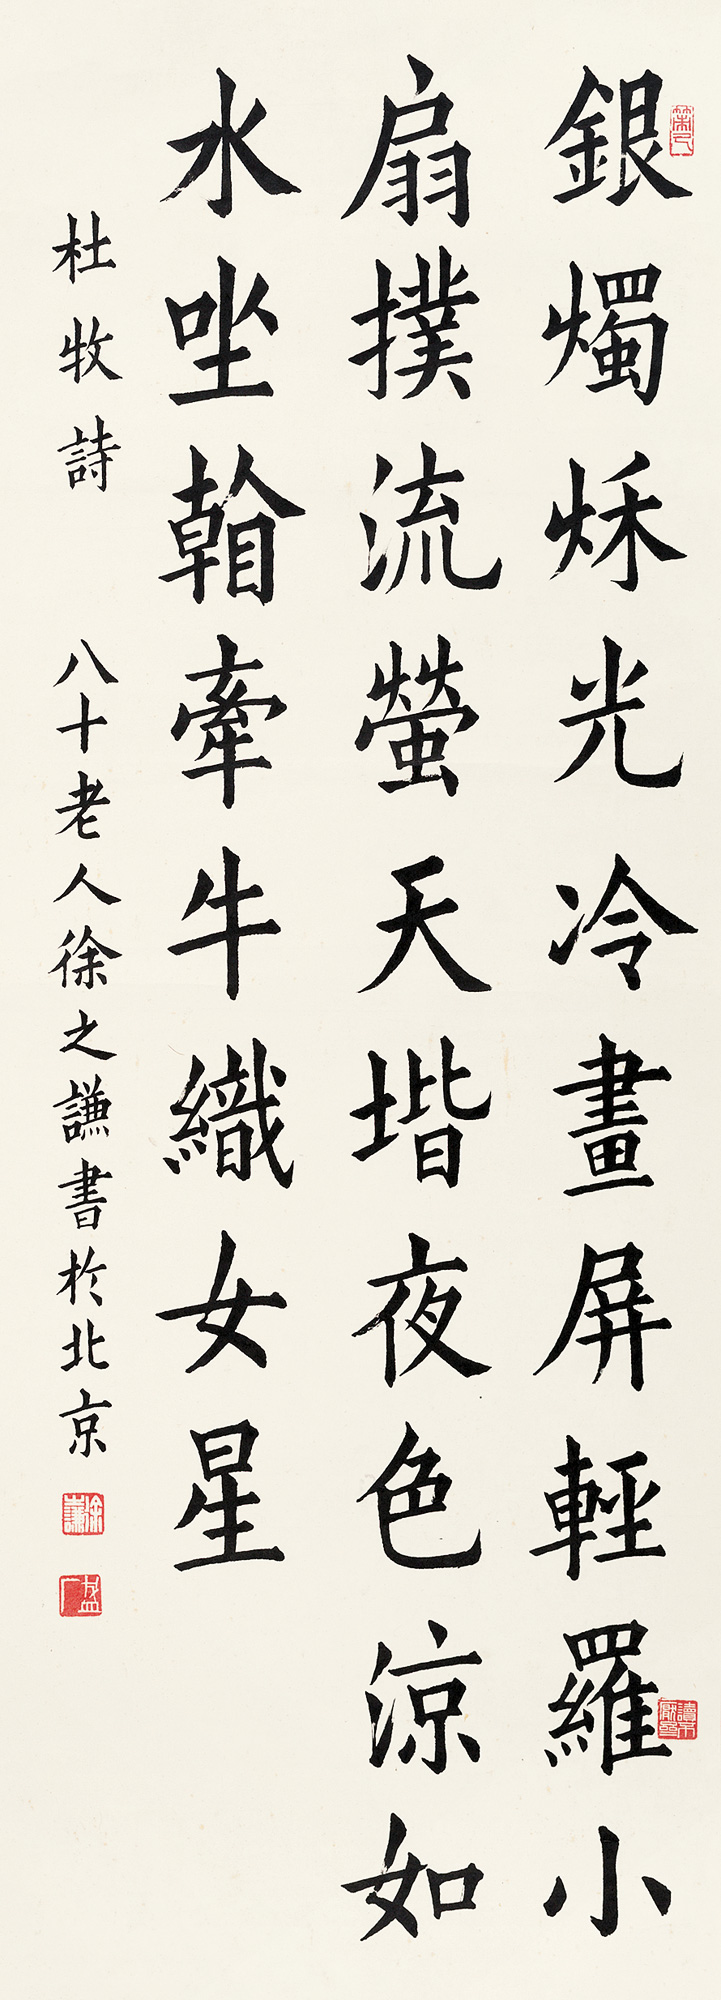 銀燭秌光冷畫屏輕羅小
扇撲流螢天堦夜色涼如
水坐看牽牛織女星
杜牧詩 八十老人徐之謙書於北京
徐之謙